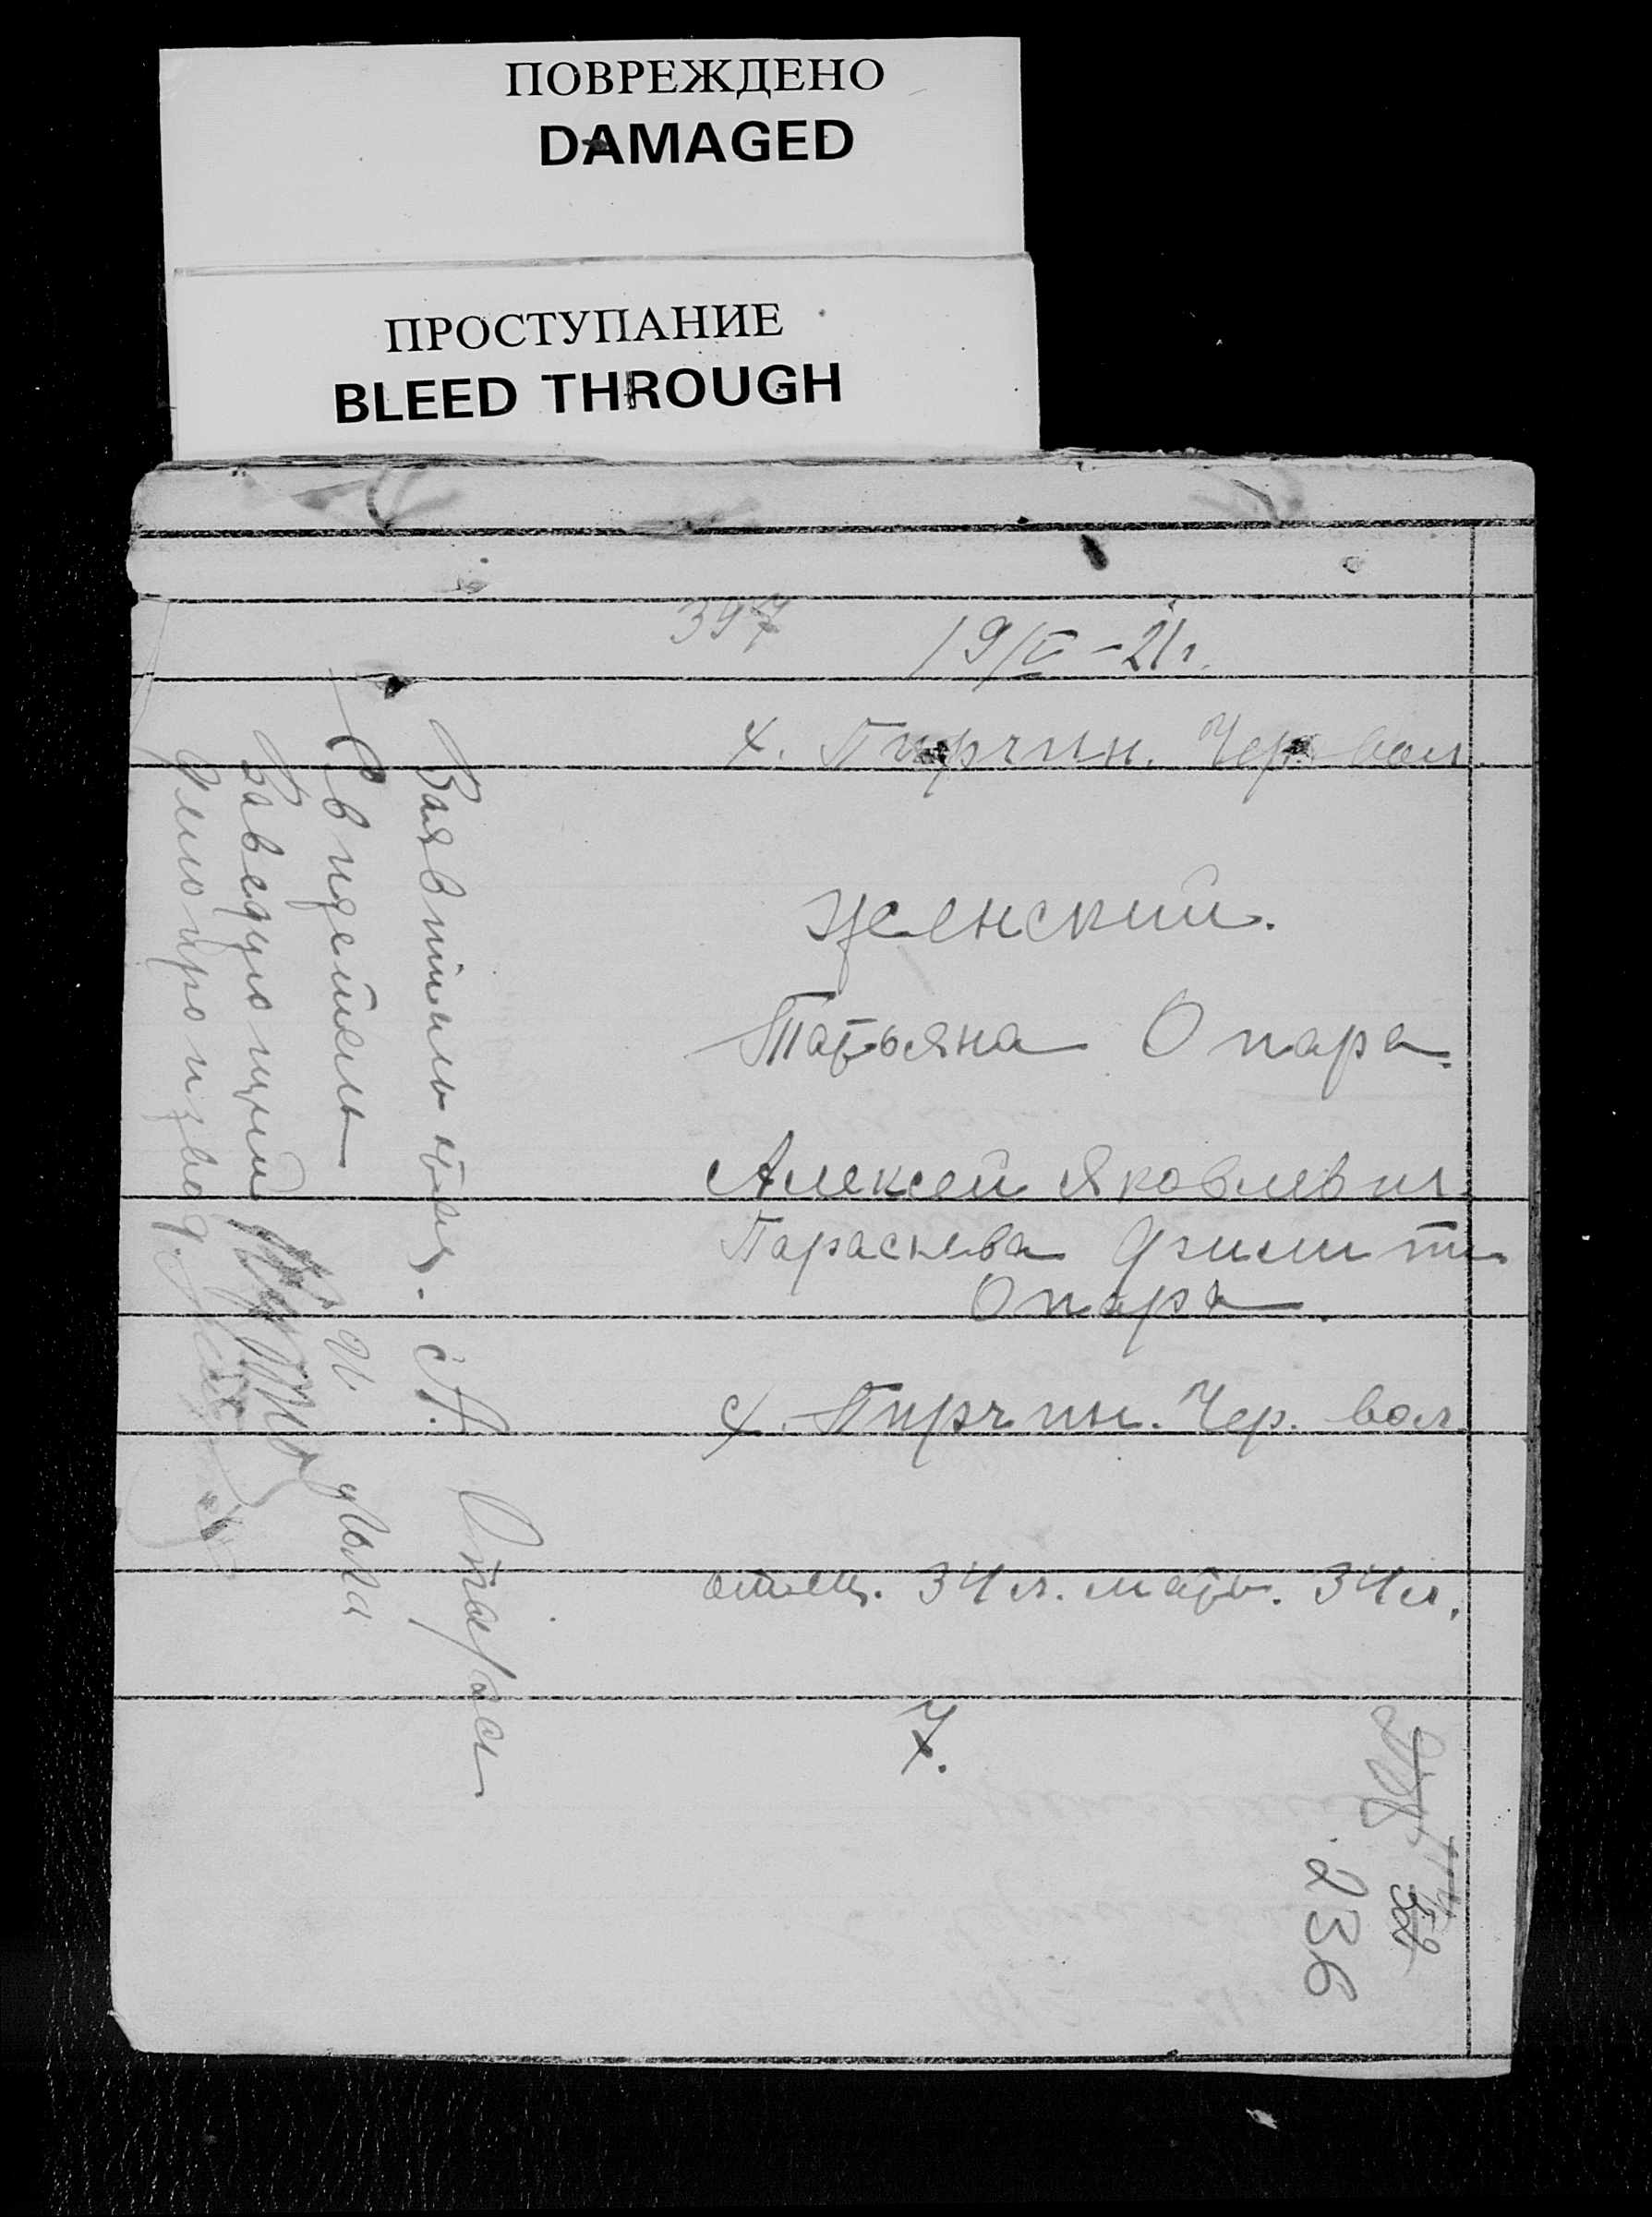 ПОВРЕЖДЕНО
DAMAGED
ПРОСТУПАНИЕ
BLEED THROUGH
397
19/V-21г.
х. Пирчин. Чер. вол.
Женский.
Татьяна Опара.
Алексей Яковлевич
Параскева
Опара
х. Пирчин. Чер. вол
отец. 34 л. мать. 34 л.
7.
236
А. Опара
Свидетель И.
Заведующий
Делопроизвод.